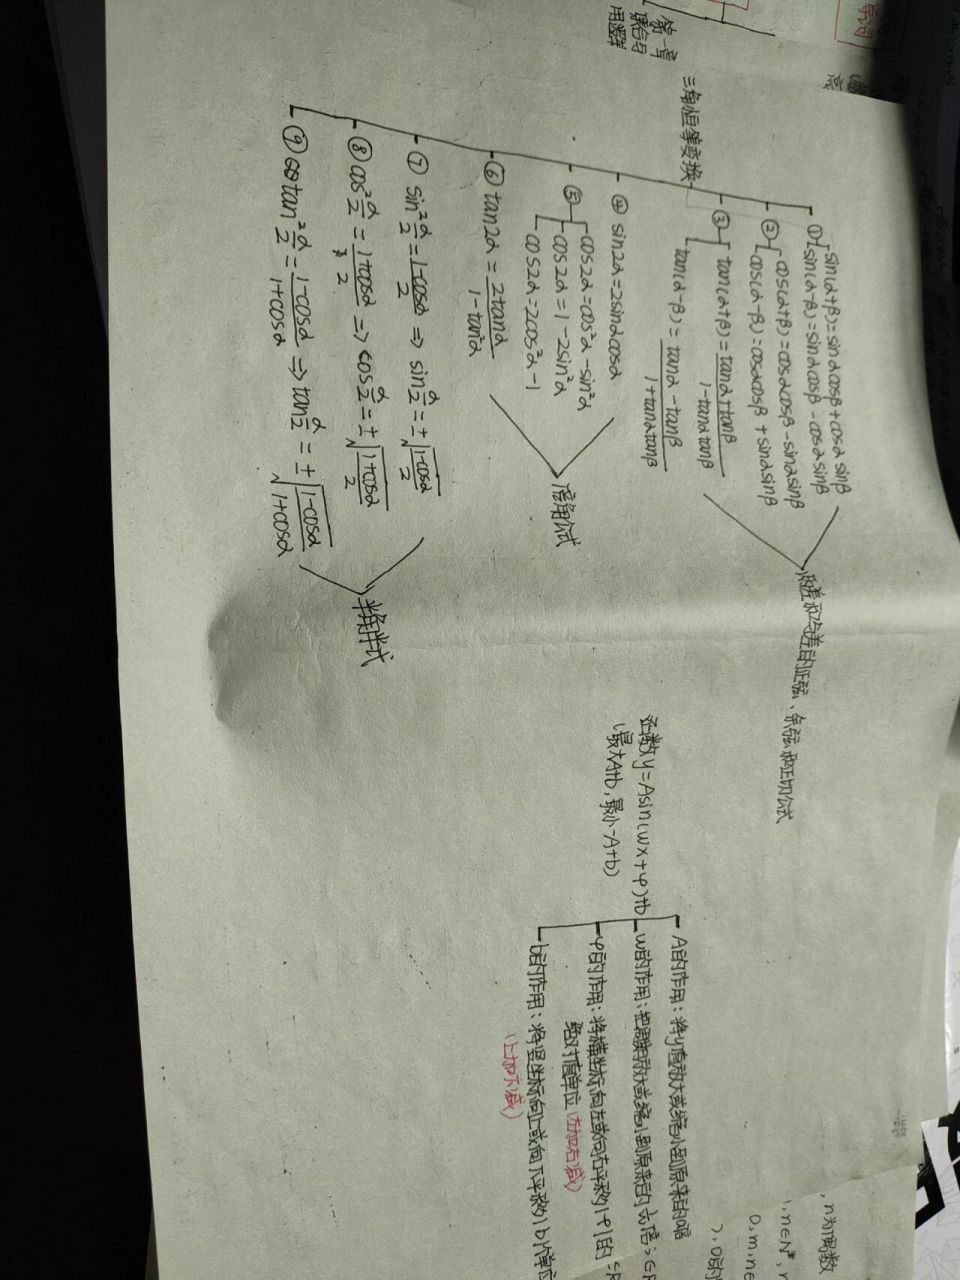 第一章
集合与
三角恒等变换
① sin(α+β)=sinαcosβ+cosαsinβ
sin(α-β)=sinαcosβ-cosαsinβ
② cos(α+β)=cosαcosβ-sinαsinβ
cos(α-β)=cosαcosβ+sinαsinβ
③ tan(α+β)=tanα+tanβ/1-tanαtanβ
tan(α-β)=tanα-tanβ/1+tanαtanβ
的正弦、余弦和正切公式
④ sin2α=2sinαcosα
⑤ cos2α=cos²α-sin²α
cos2α=1-2sin²α
cos2α=2cos²α-1
⑥ tan2α=2tanα/1-tan²α
倍角公式
⑦ sin²α/2=1-cosα/2 ⇒ sinα/2=±√1-cosα/2
⑧ cos²α/2=1+cosα/2 ⇒ cosα/2=±√1+cosα/2
⑨ tan²α/2=1-cosα/1+cosα ⇒ tanα/2=±√1-cosα/1+cosα
半角
函数y=Asin(wx+φ)+b
(最大A+b,最小-A+b)
A的作用:将y值放大或缩小到原来的A倍
w的作用:把周期放大或缩小到原来的
φ的作用:将横坐标向左或向右平移|φ|的
绝对值单位(左加右减)
b的作用:将竖坐标向上或向下平移|b|个单位
(上加下减)
,n为偶数
,n∈N*,
0,m,n∈